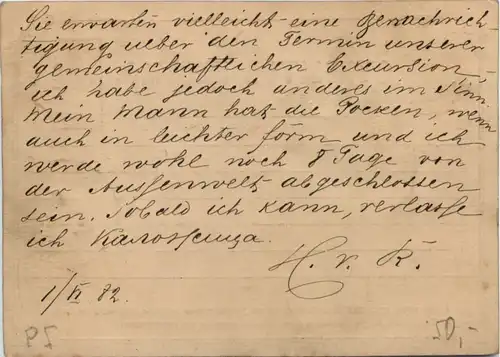 Sie erwarten vielleicht eine Benachrich-
tigung ueber den Termin unserer
gemeinschaftlichen Excursion,
ich habe jedoch anderes im Sinn.
Mein Mann hat die Pocken, wenn
auch in leichter Form und ich
werde wohl noch 8 Tage von
der Aussenwelt abgeschlossen
sein. Sobald ich kann, verlasse
ich
H. v. K.
1/VI 82.
50,-